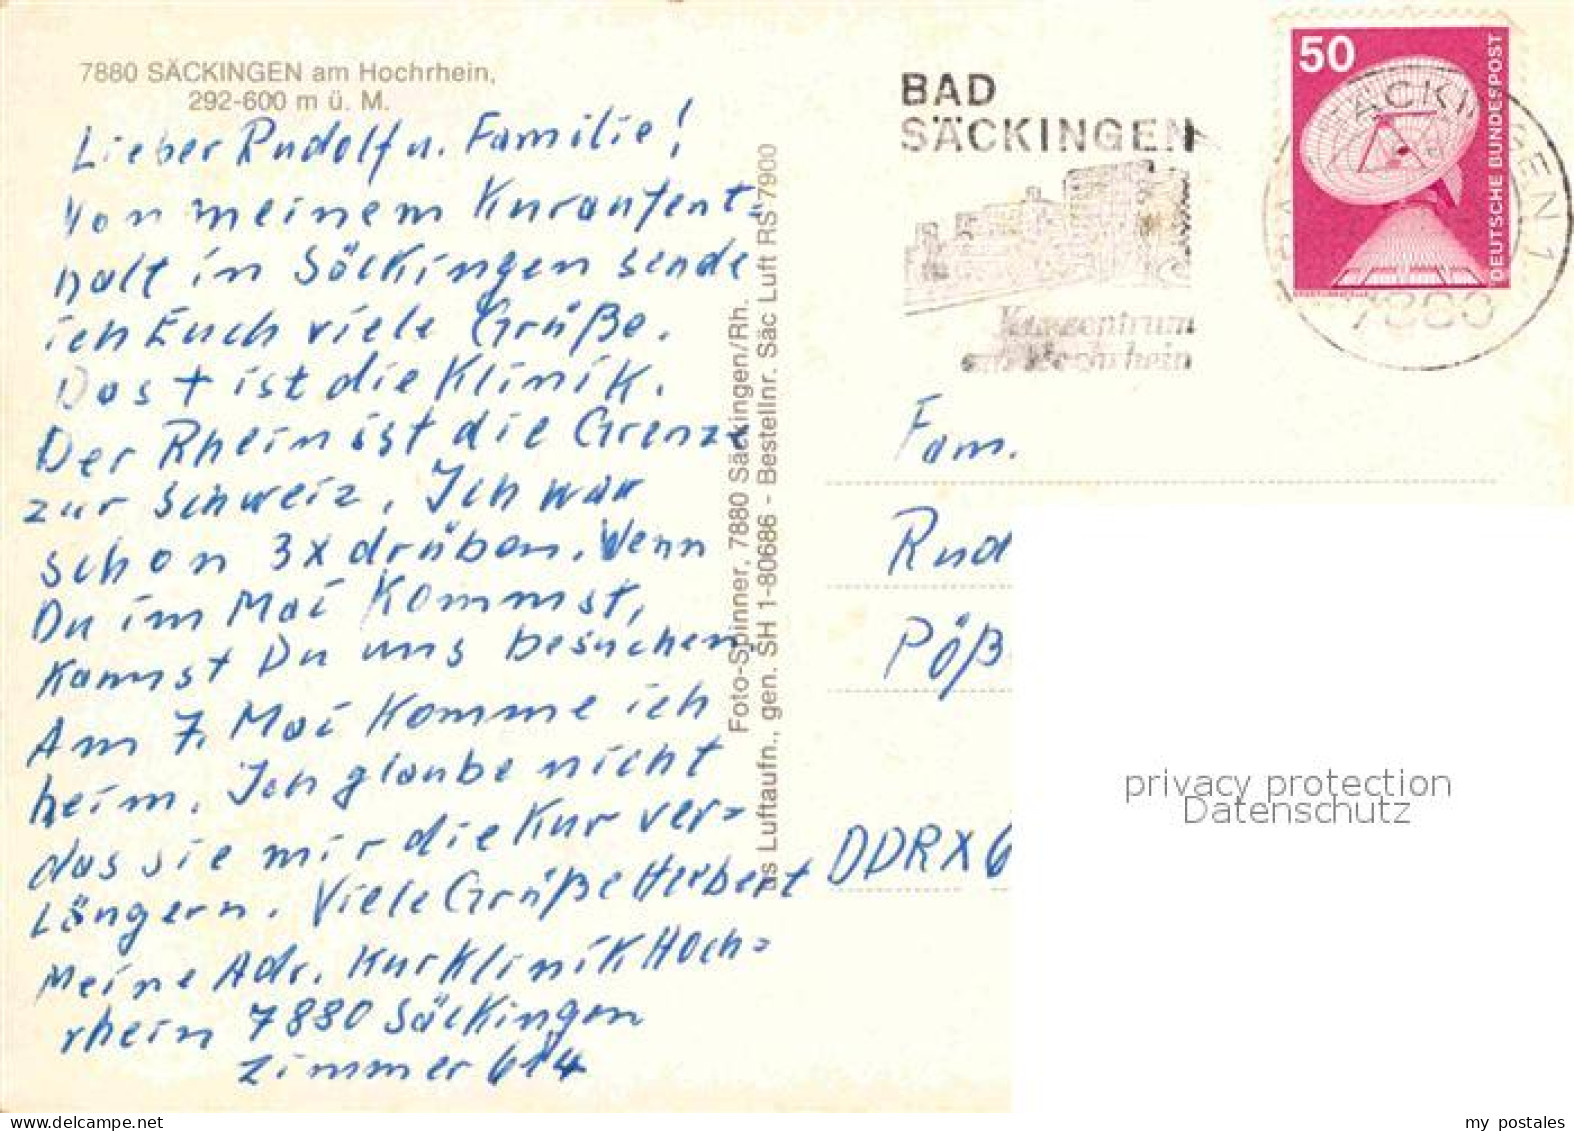 7880 SÄCKINGEN am Hochrhein,
292-600 m ü. M.
Lieber Rudolf u. Familie!
Von meinem Kuraufent-
halt in Säckingen sende
ich Euch viele Grüße.
Das + ist die Klinik.
Der Rhein ist die Grenze
zur Schweiz. Ich war
schon 3x drüben. Wenn
Du im Mai kommst,
kannst Du uns besuchen.
Am 7. Mai komme ich
heim. Ich glaube nicht
das sie mir die Kur ver=
längern. Viele Grüße Herbert
Meine Adr. Kurklinik Hoch=
rhein 7880 Säckingen
Zimmer 614
Foto-Spinner, 7880 Säckingen/Rh.
us Luftaufn., gen. SH 1-80686 - Bestellnr. Säc Luft RS 7900
BAD
SÄCKINGEN
Kurzentrum
am Hochrhein
50
DEUTSCHE BUNDESPOST
BAD SÄCKINGEN 1
7880
Fam.
Rud
Pöß
DDR X 6
privacy protection
Datenschutz
my postales